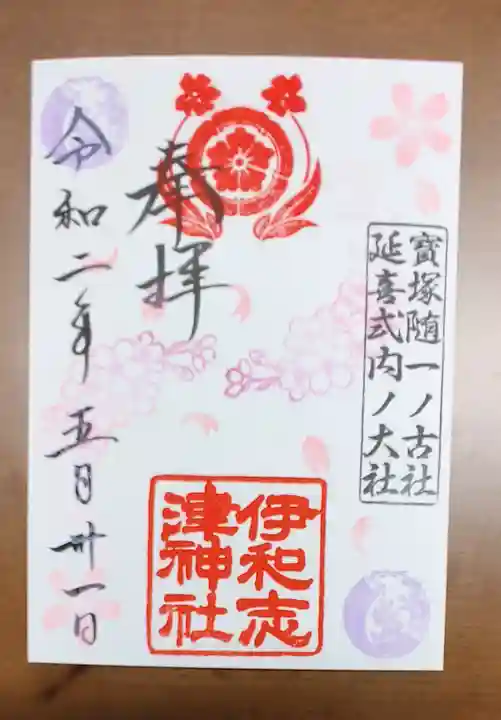 寶塚随一ノ古社
延喜式内ノ大社
奉拝
伊和志
津神社
令和二年五月卅一日